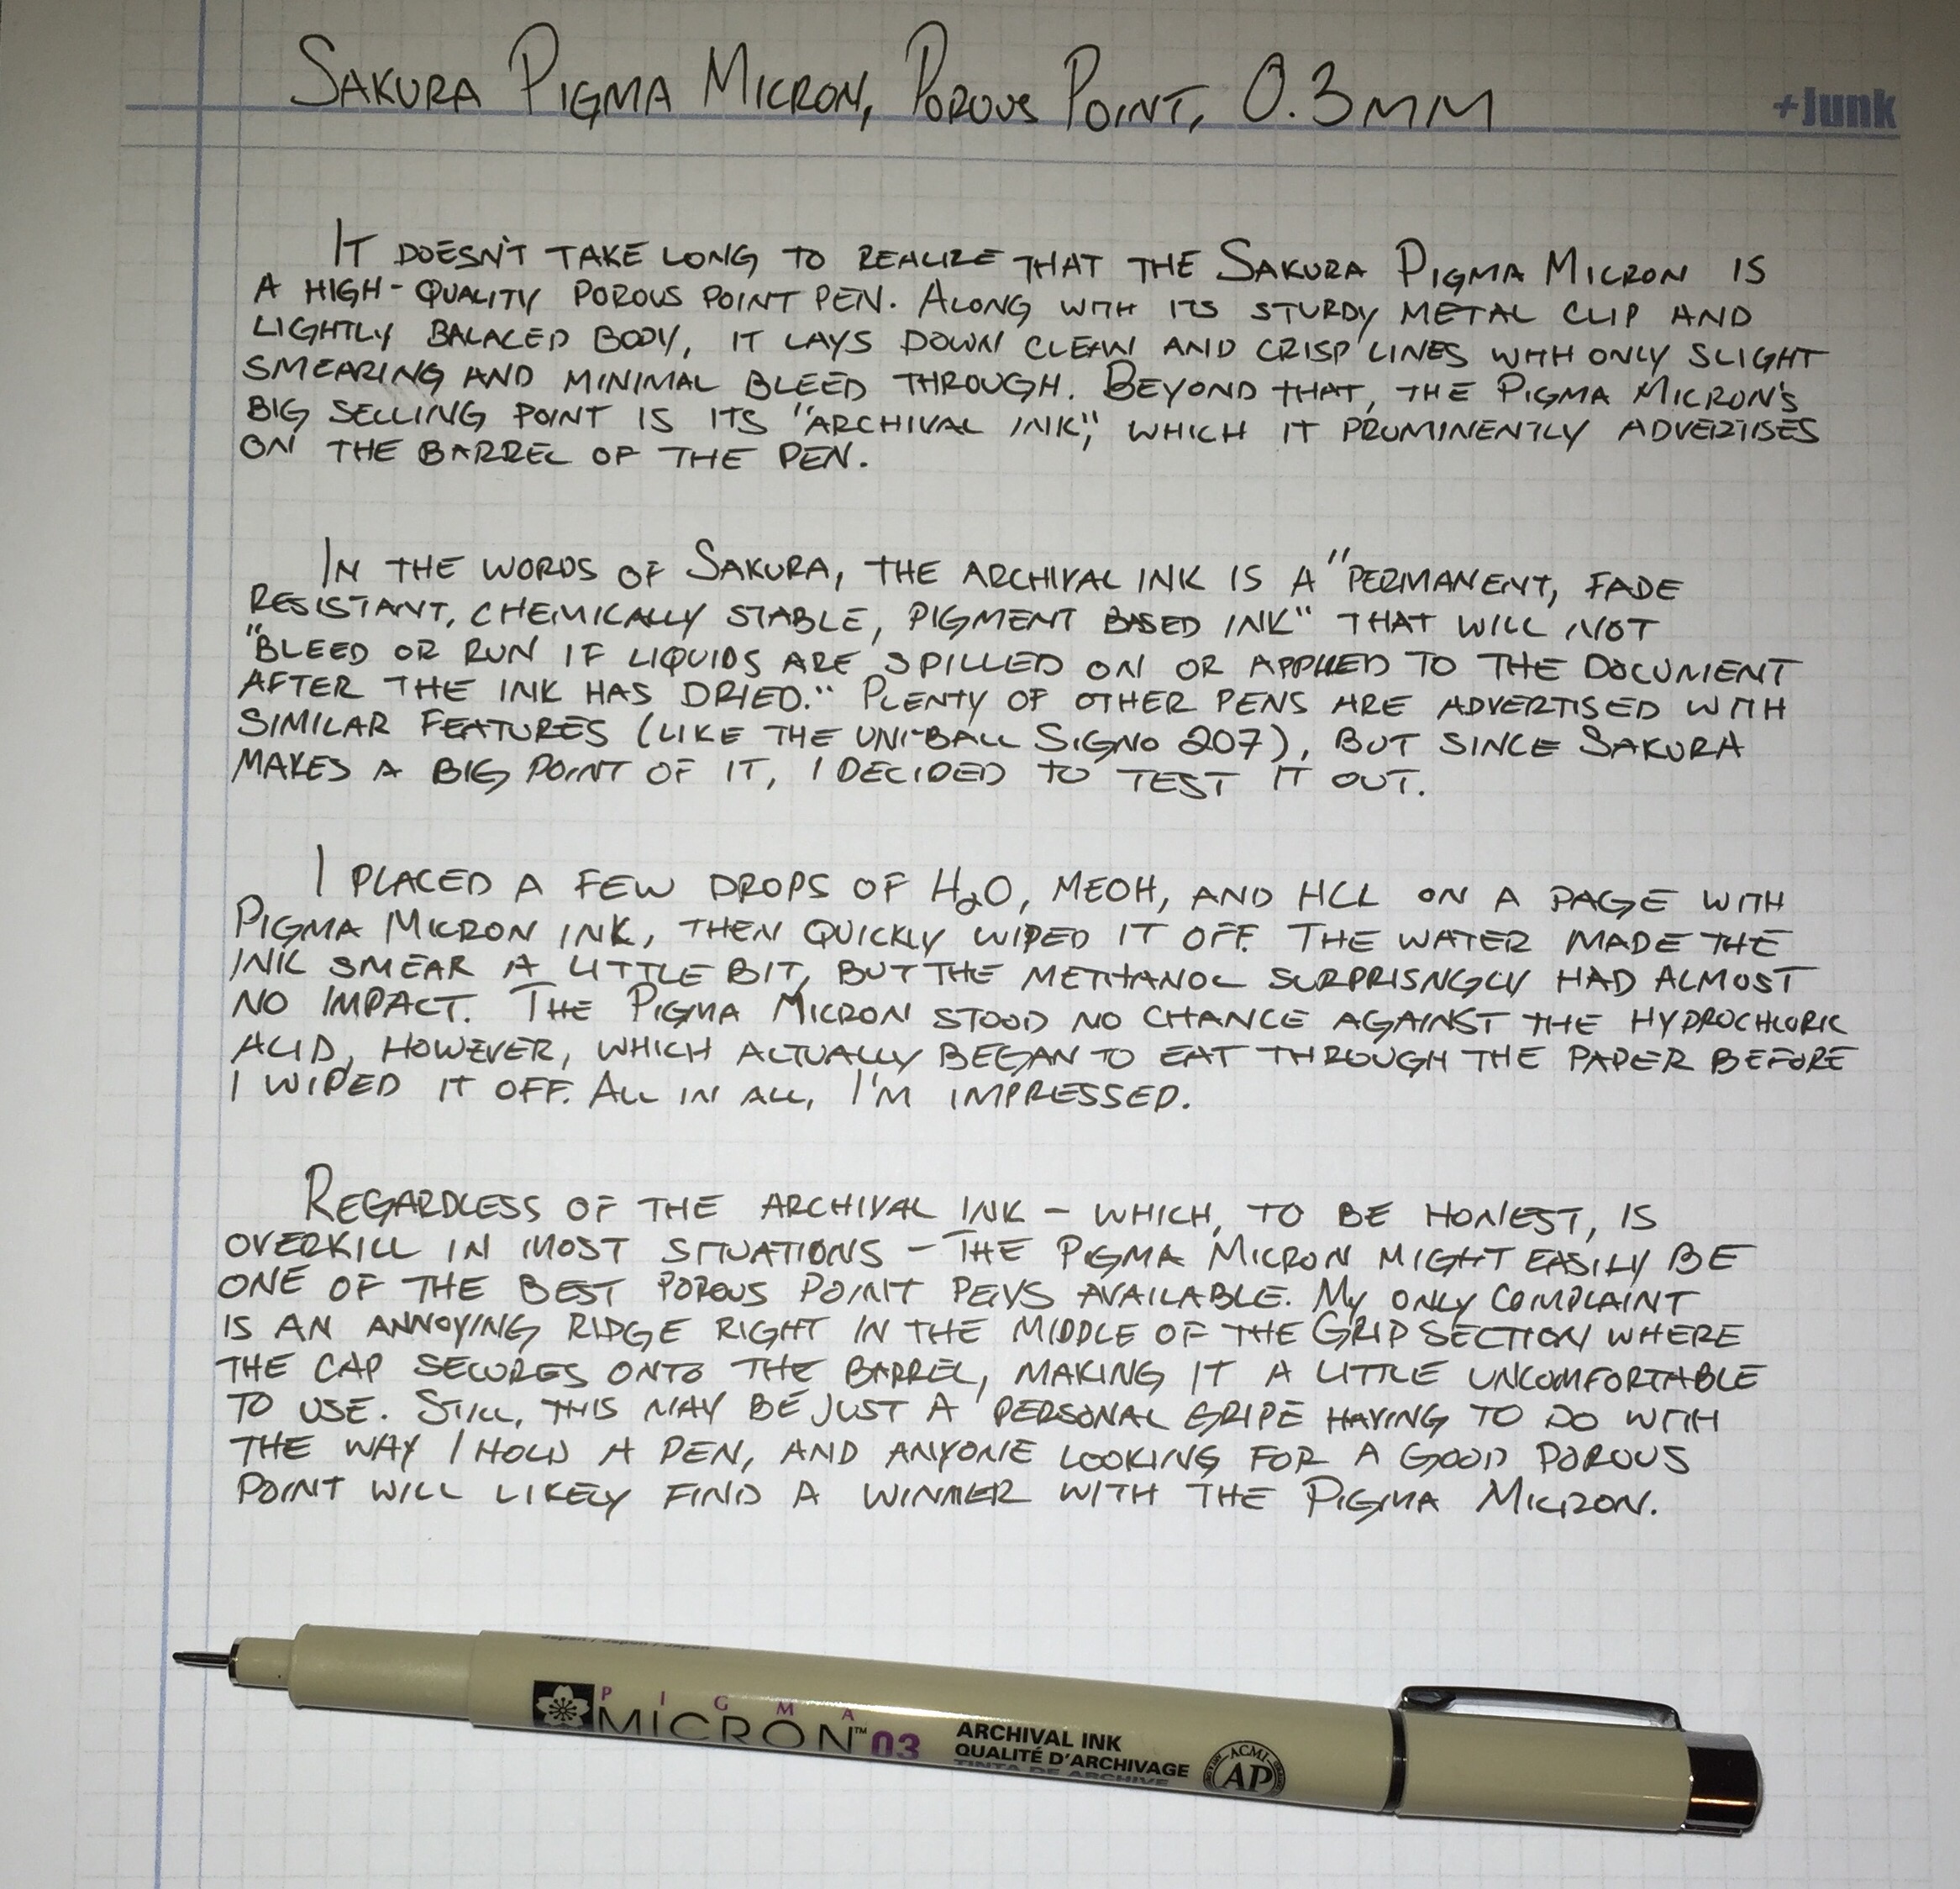 SAKURA PIGMA MICRON, POROUS POINT, 0.3MM
+Junk
IT DOESN'T TAKE LONG TO REALIZE THAT THE SAKURA PIGMA MICRON IS
A HIGH-QUALITY POROUS POINT PEN. ALONG WITH ITS STURDY METAL CLIP AND
LIGHTLY BALACED BODY, IT LAYS DOWN CLEAN AND CRISP LINES WITH ONLY SLIGHT
SMEARING AND MINIMAL BLEED THROUGH. BEYOND THAT, THE PIGMA MICRON'S
BIG SELLING POINT IS ITS "ARCHIVAL INK", WHICH IT PROMINENTLY ADVERTISES
ON THE BARREL OF THE PEN.
IN THE WORDS OF SAKURA, THE ARCHIVAL INK IS A "PERMANENT, FADE
RESISTANT, CHEMICALLY STABLE, PIGMENT BASED INK" THAT WILL NOT
"BLEED OR RUN IF LIQUIDS ARE SPILLED ON OR APPLIED TO THE DOCUMENT
AFTER THE INK HAS DRIED." PLENTY OF OTHER PENS ARE ADVERTISED WITH
SIMILAR FEATURES (LIKE THE UNI-BALL SIGNO 207), BUT SINCE SAKURA
MAKES A BIG POINT OF IT, I DECIDED TO TEST IT OUT.
I PLACED A FEW DROPS OF H2O, MEOH, AND HCL ON A PAGE WITH
PIGMA MICRON INK, THEN QUICKLY WIPED IT OFF. THE WATER MADE THE
INK SMEAR A LITTLE BIT, BUT THE METHANOL SURPRISNGLY HAD ALMOST
NO IMPACT. THE PIGMA MICRON STOOD NO CHANCE AGAINST THE HYDROCHLORIC
ACID, HOWEVER, WHICH ACTUALLY BEGAN TO EAT THROUGH THE PAPER BEFORE
I WIPED IT OFF. ALL IN ALL, I'M IMPRESSED.
REGARDLESS OF THE ARCHIVAL INK - WHICH, TO BE HONEST, IS
OVERKILL IN MOST SITUATIONS - THE PIGMA MICRON MIGHT EASILY BE
ONE OF THE BEST POROUS POINT PENS AVAILABLE. MY ONLY COMPLAINT
IS AN ANNOYING RIDGE RIGHT IN THE MIDDLE OF THE GRIP SECTION WHERE
THE CAP SECURES ONTO THE BARREL, MAKING IT A LITTLE UNCOMFORTABLE
TO USE. STILL, THIS MAY BE JUST A PERSONAL GRIPE HAVING TO DO WITH
THE WAY I HOLD A PEN, AND ANYONE LOOKING FOR A GOOD POROUS
POINT WILL LIKELY FIND A WINNER WITH THE PIGMA MICRON.
PIGMA
MICRON™ 03
ARCHIVAL INK
QUALITÉ D'ARCHIVAGE
TINTA DE ARCHIVE
ACMI
AP